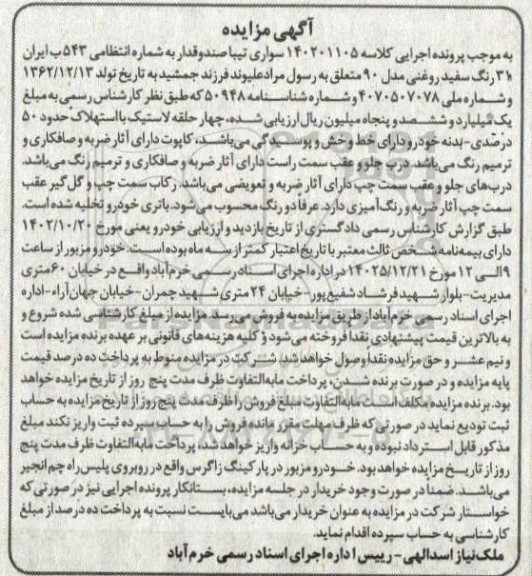 آگهی مزایده
به موجب پرونده اجرایی کلاسه ۱۴۰۲۰۱۱۰۵ سواری تیبا صندوقدار به شماره انتظامی ۵۴۳ب ایران
۳۱ رنگ سفید روغنی مدل ۹۰ متعلق به رسول مرادعلیوند فرزند جمشید به تاریخ تولد ۱۳۶۲/۱۲/۱۳
و شماره ملی ۴۰۷۰۵۰۷۰۷۸ و شماره شناسنامه ۵۰۹۴۸ که طبق نظر کارشناس رسمی به مبلغ
یک میلیارد و ششصد و پنجاه میلیون ریال ارزیابی شده، چهار حلقه لاستیک با استهلاک حدود ۵۰
درصدی-بدنه خودرو دارای خط و خش و پوسیدگی می‌باشد، کاپوت دارای آثار ضربه و صافکاری و
ترمیم رنگ می‌باشد. درب جلو و عقب سمت راست دارای آثار ضربه و صافکاری و ترمیم رنگ می‌باشد.
درب‌های جلو و عقب سمت چپ دارای آثار ضربه و تعویضی می‌باشد، رکاب سمت چپ و گل‌گیر عقب
سمت چپ آثار ضربه و رنگ‌آمیزی دارد. عرفا دو رنگ محسوب می‌شود. باتری خودرو تخلیه شده است.
طبق گزارش کارشناس رسمی دادگستری از تاریخ بازدید و ارزیابی خودرو یعنی مورخ ۱۴۰۲/۱۰/۲۰
دارای بیمه‌نامه شخص ثالث معتبر با تاریخ اعتبار کمتر از سه ماه بوده است. خودرو مزبور از ساعت
۹ الی ۱۲ مورخ ۱۴۰۲۵/۱۲/۲۱ در اداره اجرای اسناد رسمی خرم‌آباد واقع در خیابان ۶۰ متری
مدیریت-بلوار شهید فرشاد شفیع‌پور-خیابان ۲۴ متری شهید چمران-خیابان جهان‌آراء-اداره
اجرای اسناد رسمی خرم‌آباد از طریق مزایده به فروش می‌رسد. مزایده از مبلغ کارشناسی شده شروع و
به بالاترین قیمت پیشنهادی نقدا فروخته می‌شود و کلیه هزینه‌های قانونی بر عهده برنده مزایده است
و نیم عشر و حق مزایده نقدا وصول خواهد شد. شرکت در مزایده منوط به پرداخت ده درصد قیمت
پایه مزایده و در صورت برنده شدن، پرداخت مابه‌التفاوت ظرف مدت پنج روز از تاریخ مزایده خواهد
بود. برنده مزایده مکلف است مابه‌التفاوت مبلغ فروش را ظرف مدت پنج روز از تاریخ مزایده به حساب
ثبت تودیع نماید در صورتی که ظرف مهلت مقرر مانده فروش را به حساب سپرده ثبت واریز نکند مبلغ
مذکور قابل استرداد نبوده و به حساب خزانه واریز خواهد شد، پرداخت مابه‌التفاوت ظرف مدت پنج
روز از تاریخ مزایده خواهد بود. خودرو مزبور در پارکینگ زاگرس واقع در روبروی پلیس راه چم انجیر
می‌باشد. ضمنا در صورت وجود خریدار در جلسه مزایده، بستانکار پرونده اجرایی نیز در صورتی که
خواستار شرکت در مزایده به عنوان خریدار می‌باشد می‌بایست نسبت به پرداخت ده درصد از مبلغ
کارشناسی به حساب سپرده اقدام نماید.
ملک‌نیاز اسدالهی-رییس اداره اجرای اسناد رسمی خرم آباد